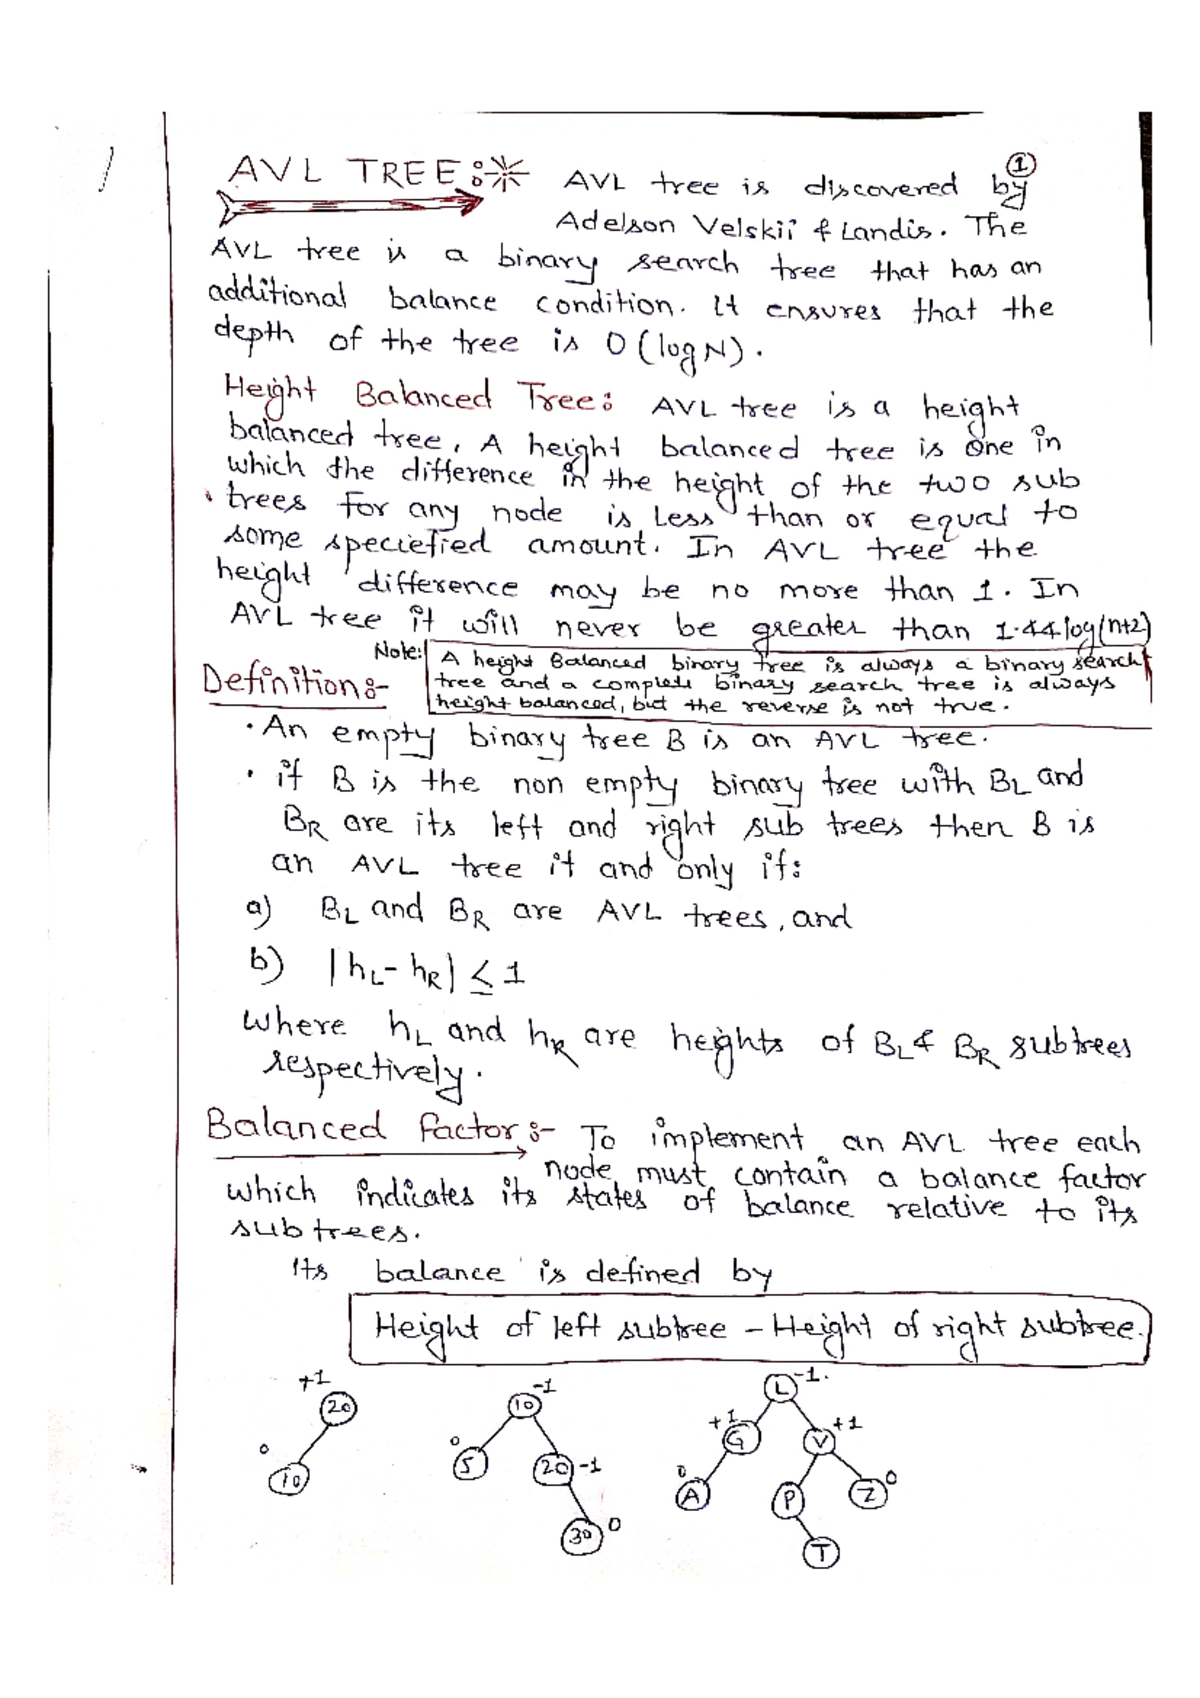 1
AVL TREE:
AVL tree is discovered by
Adelson Velskii & Landis. The
AVL tree is a binary search tree that has an
additional balance condition. It ensures that the
depth of the tree is O(log N).
Height Balanced Tree: AVL tree is a height
balanced tree. A height balanced tree is one in
which the difference in the height of the two sub
trees for any node is Less than or equal to
some speciefied amount. In AVL tree the
height difference may be no more than 1. In
AVL tree it will never be greater than 1.44 log(n+2)
Note: A height Balanced binary tree is always a binary search
tree and a complete binary search tree is always
height balanced, but the reverse is not true.
Definition:-
• An empty binary tree B is an AVL tree.
• if B is the non empty binary tree with BL and
BR are its left and right sub trees then B is
an AVL tree if and only if:
a) BL and BR are AVL trees, and
b) |hL - hR| ≤ 1
Where hL and hR are heights of BL & BR subtrees
respectively.
Balanced factor:- To implement an AVL tree each
node must contain a balance factor
which indicates its states of balance relative to its
sub trees.
Its balance is defined by
Height of left subtree - Height of right subtree.
+1 -1 -1.
20 10 L
+1 +1
G V
0 0 0 0
10 5 20 -1 A P Z
30 0 T